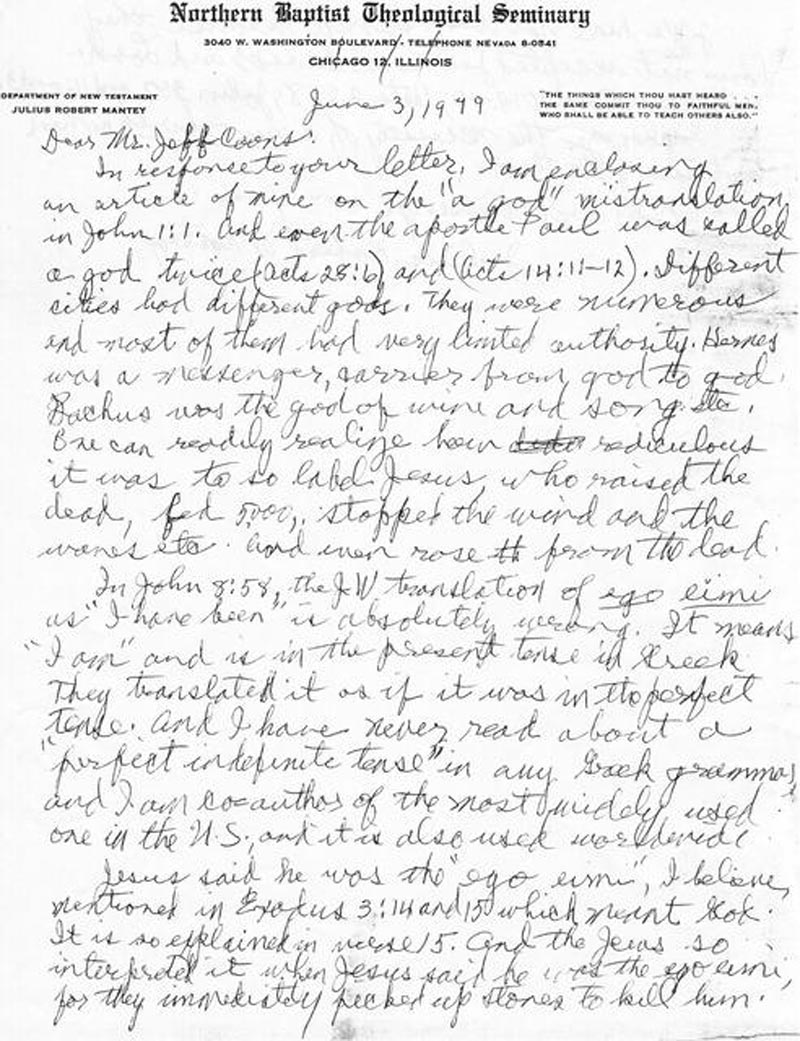 Northern Baptist Theological Seminary
3040 W. WASHINGTON BOULEVARD - TELEPHONE NEVADA 8-0541
CHICAGO 12, ILLINOIS
DEPARTMENT OF NEW TESTAMENT
JULIUS ROBERT MANTEY
June 3, 1979
"THE THINGS WHICH THOU HAST HEARD . . .
THE SAME COMMIT THOU TO FAITHFUL MEN,
WHO SHALL BE ABLE TO TEACH OTHERS ALSO."
Dear Mr. Jeff Coons:
In response to your letter, I am enclosing
an article of mine on the "a god" mistranslation
in John 1:1. And even the apostle Paul was called
a god twice (Acts 28:6) and (Acts 14:11-12). Different
cities had different gods. They were numerous
and most of them had very limited authority. Hermes
was a messenger, carrier from god to god.
Bachus was the god of wine and song etc.
One can readily realize how rediculous
it was to so label Jesus, who raised the
dead, fed 5,000, stopped the wind and the
waves etc. And even rose from the dead.
In John 8:58, the J W translation of ego eimi
as "I have been" is absolutely wrong. It means
"I am" and is in the present tense in Greek.
They translated it as if it was in the perfect
tense. And I have never read about a
"perfect indefinite tense" in any Greek grammar,
and I am co-author of the most widely used
one in the U.S., and it is also used worldwide.
Jesus said he was the "ego eimi", I believe,
mentioned in Exodus 3:14 and 15 which meant God.
It is so explained in verse 15. And the Jews so
interpreted it when Jesus said he was the ego eimi,
for they immediately picked up stones to kill him.